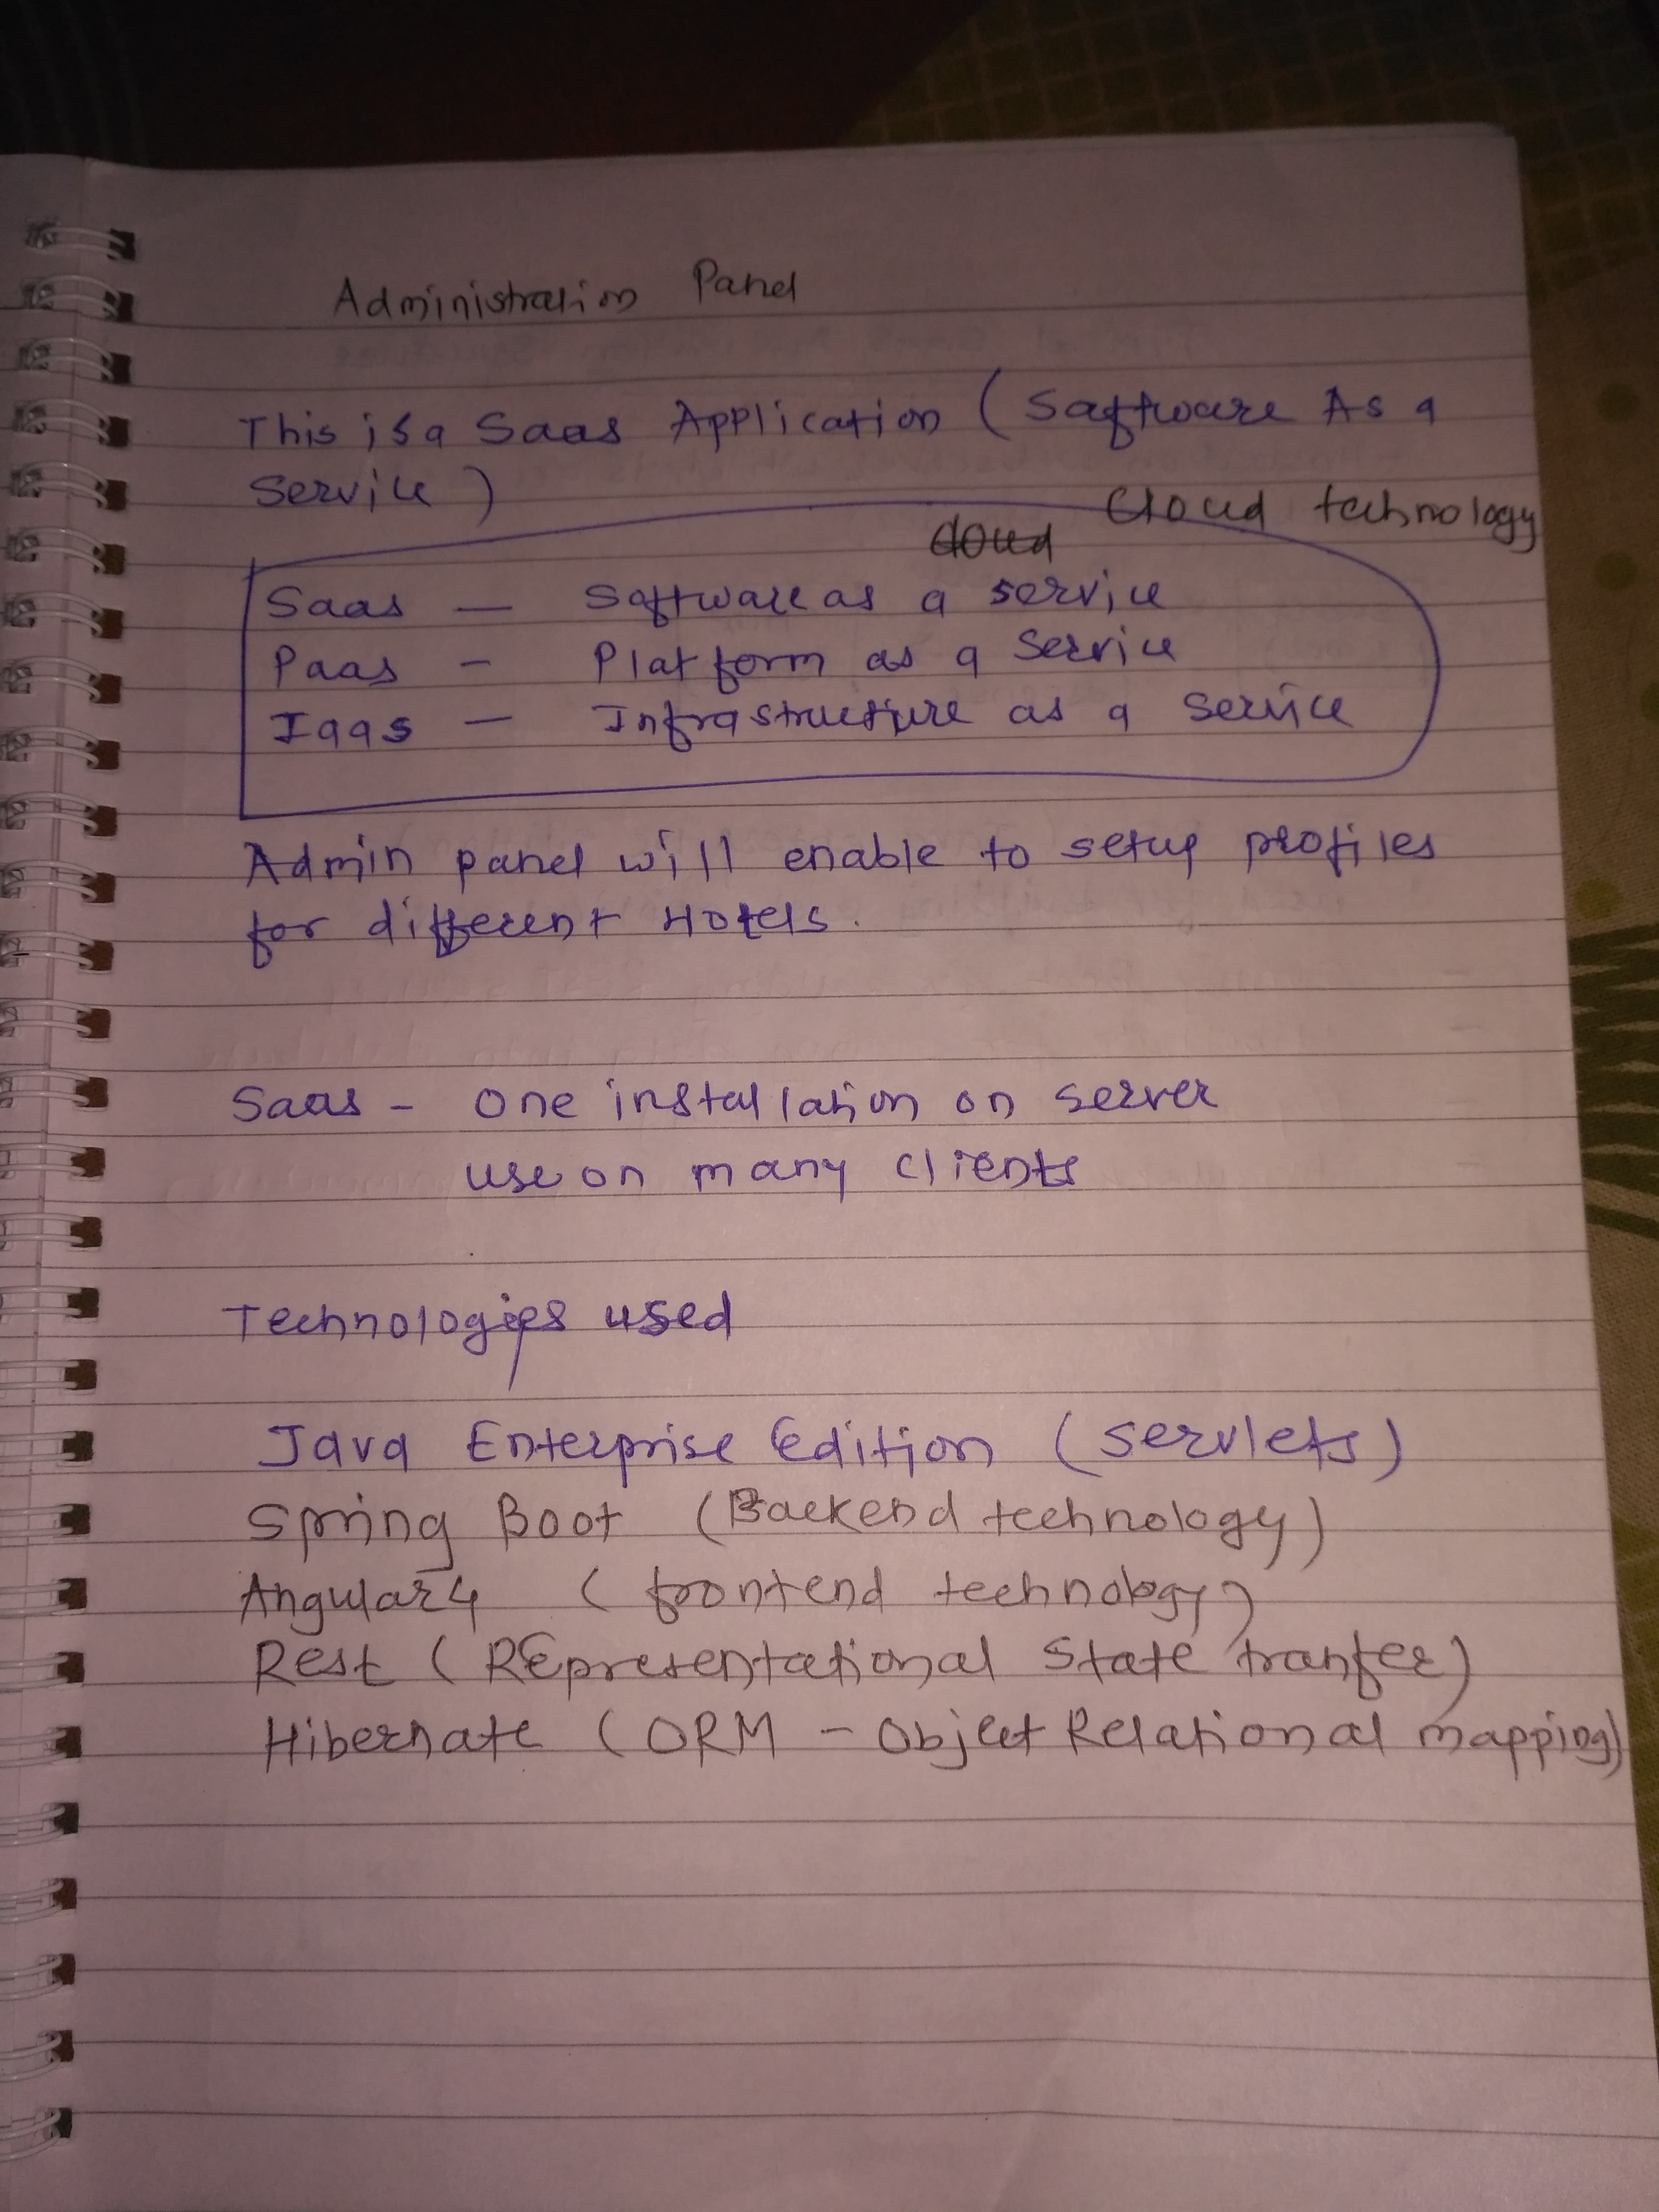 Administration Panel
This is a Saas Application (Software As a
Service)
cloud Cloud technology
Saas — Software as a service
Paas - Platform as a Service
Iaas — Infrastructure as a Service
Admin panel will enable to setup profiles
for different Hotels.
Saas - One installation on server
use on many clients
Technologies used
Java Enterprise Edition (servlets)
Spring Boot (Backend technology)
Angular 4 (frontend technology)
Rest (REpresentational State tranfer)
Hibernate (ORM - Object Relational mapping)